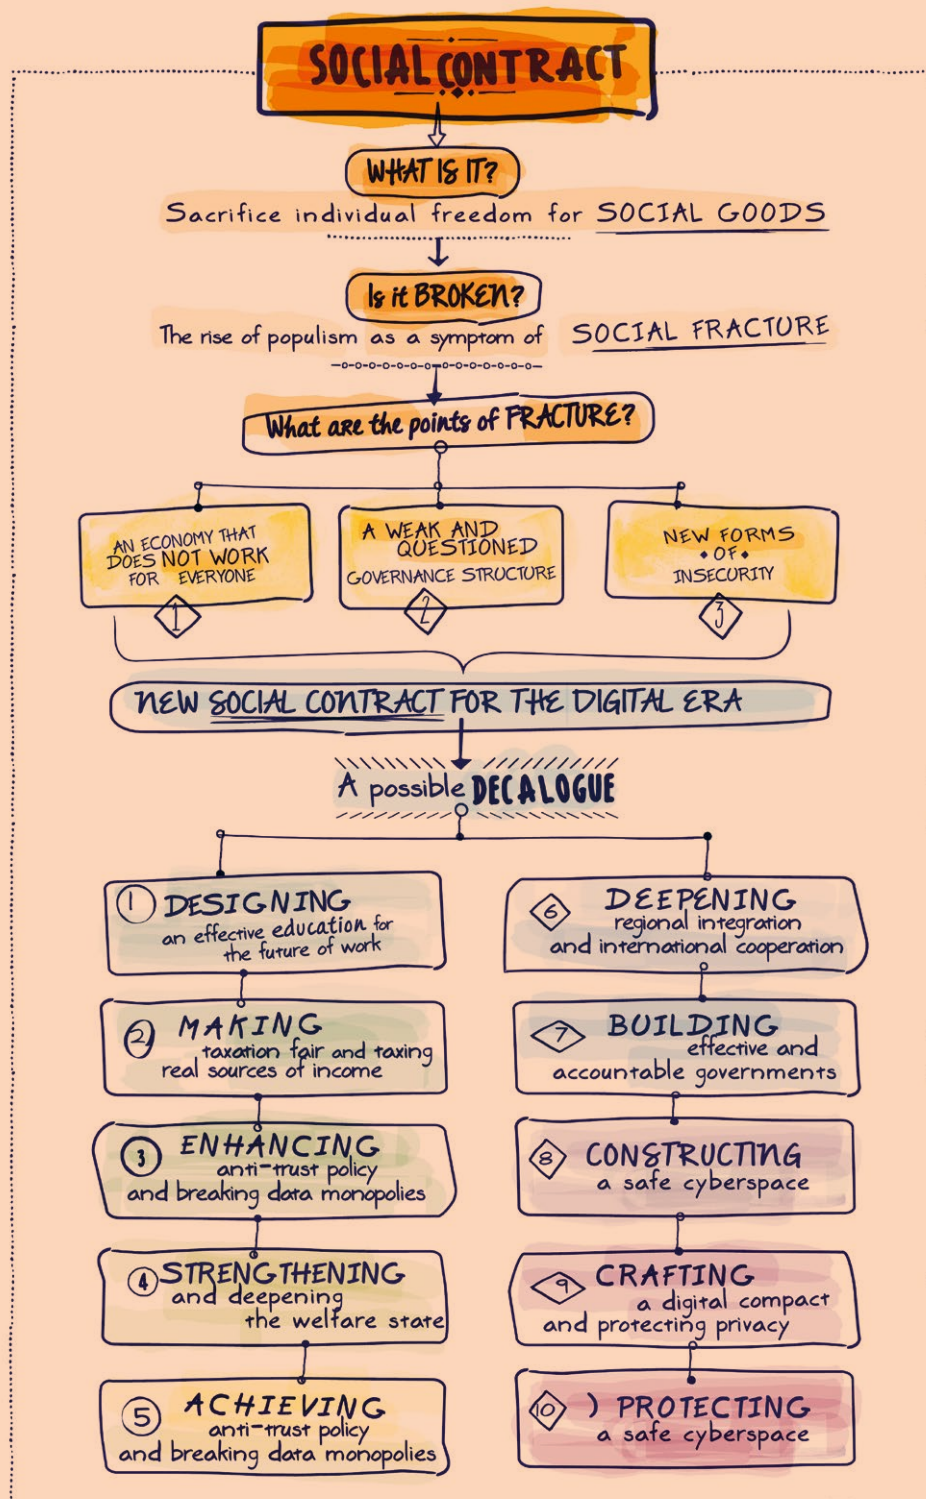 SOCIAL CONTRACT
WHAT IS IT?
Sacrifice individual freedom for SOCIAL GOODS
Is it BROKEN?
The rise of populism as a symptom of SOCIAL FRACTURE
What are the points of FRACTURE?
AN ECONOMY THAT
DOES NOT WORK
FOR EVERYONE
1
A WEAK AND
QUESTIONED
GOVERNANCE STRUCTURE
2
NEW FORMS
OF
INSECURITY
3
NEW SOCIAL CONTRACT FOR THE DIGITAL ERA
A possible DECALOGUE
1 DESIGNING
an effective education for
the future of work
2 MAKING
taxation fair and taxing
real sources of income
3 ENHANCING
anti-trust policy
and breaking data monopolies
4 STRENGTHENING
and deepening
the welfare state
5 ACHIEVING
anti-trust policy
and breaking data monopolies
6 DEEPENING
regional integration
and international cooperation
7 BUILDING
effective and
accountable governments
8 CONSTRUCTING
a safe cyberspace
9 CRAFTING
a digital compact
and protecting privacy
10 ) PROTECTING
a safe cyberspace